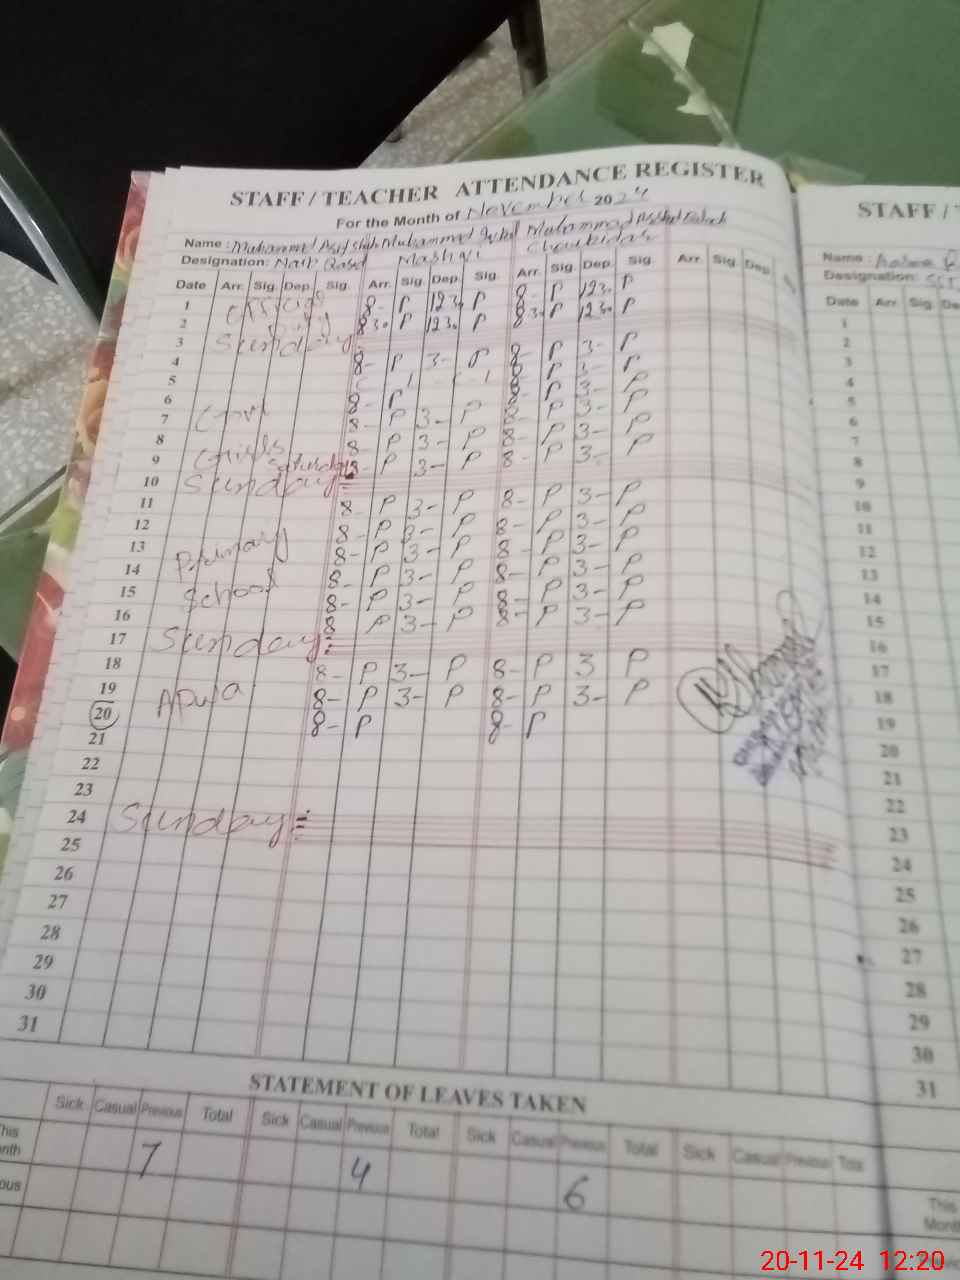 STAFF / TEACHER ATTENDANCE REGISTER
For the Month of November 2024
Name : Muhammad Asif Shah Muhammad Iqbal Muhammad
Designation: Naib Qasid Mashqi Choukidar
Date Arr. Sig. Dep. Sig. Arr. Sig. Dep. Sig. Arr. Sig. Dep. Sig. Arr. Sig. Dep.
1 8- P 1230 P 8- P 1230 P
2 830 P 1230 P 830 P 1230 P
3 Sunday
4 8- P 3- P 8- P 3- P
5 8- P 3- P
6 8- P 8- P 3- P
7 Govt 8- P 3- P 8- P 3- P
8 8- P 3- P 8- P 3- P
9 Girls Saturday 8- P 3- P 8- P 3- P
10 Sunday
11 8- P 3- P 8- P 3- P
12 8- P 3- P 8- P 3- P
13 Primary 8- P 3- P 8- P 3- P
14 8- P 3- P 8- P 3- P
15 School 8- P 3- P 8- P 3- P
16 8 P 3- P 8- P 3- P
17 Sunday
18 8- P 3- P 8- P 3 P
19 Apwa 8- P 3- P 8- P 3- P
20 8- P 8- P
21
22
23
24 Sunday
25
26
27
28
29
30
31
STATEMENT OF LEAVES TAKEN
Sick Casual Previous Total Sick Casual Previous Total Sick Casual Previous Total Sick Casual Previous
7 4 6
STAFF / T
Name :
Designation:
Date Arr. Sig. De
1
2
3
4
5
6
7
8
9
10
11
12
13
14
15
16
17
18
19
20
21
22
23
24
25
26
27
28
29
30
31
This
Mont
20-11-24 12:20